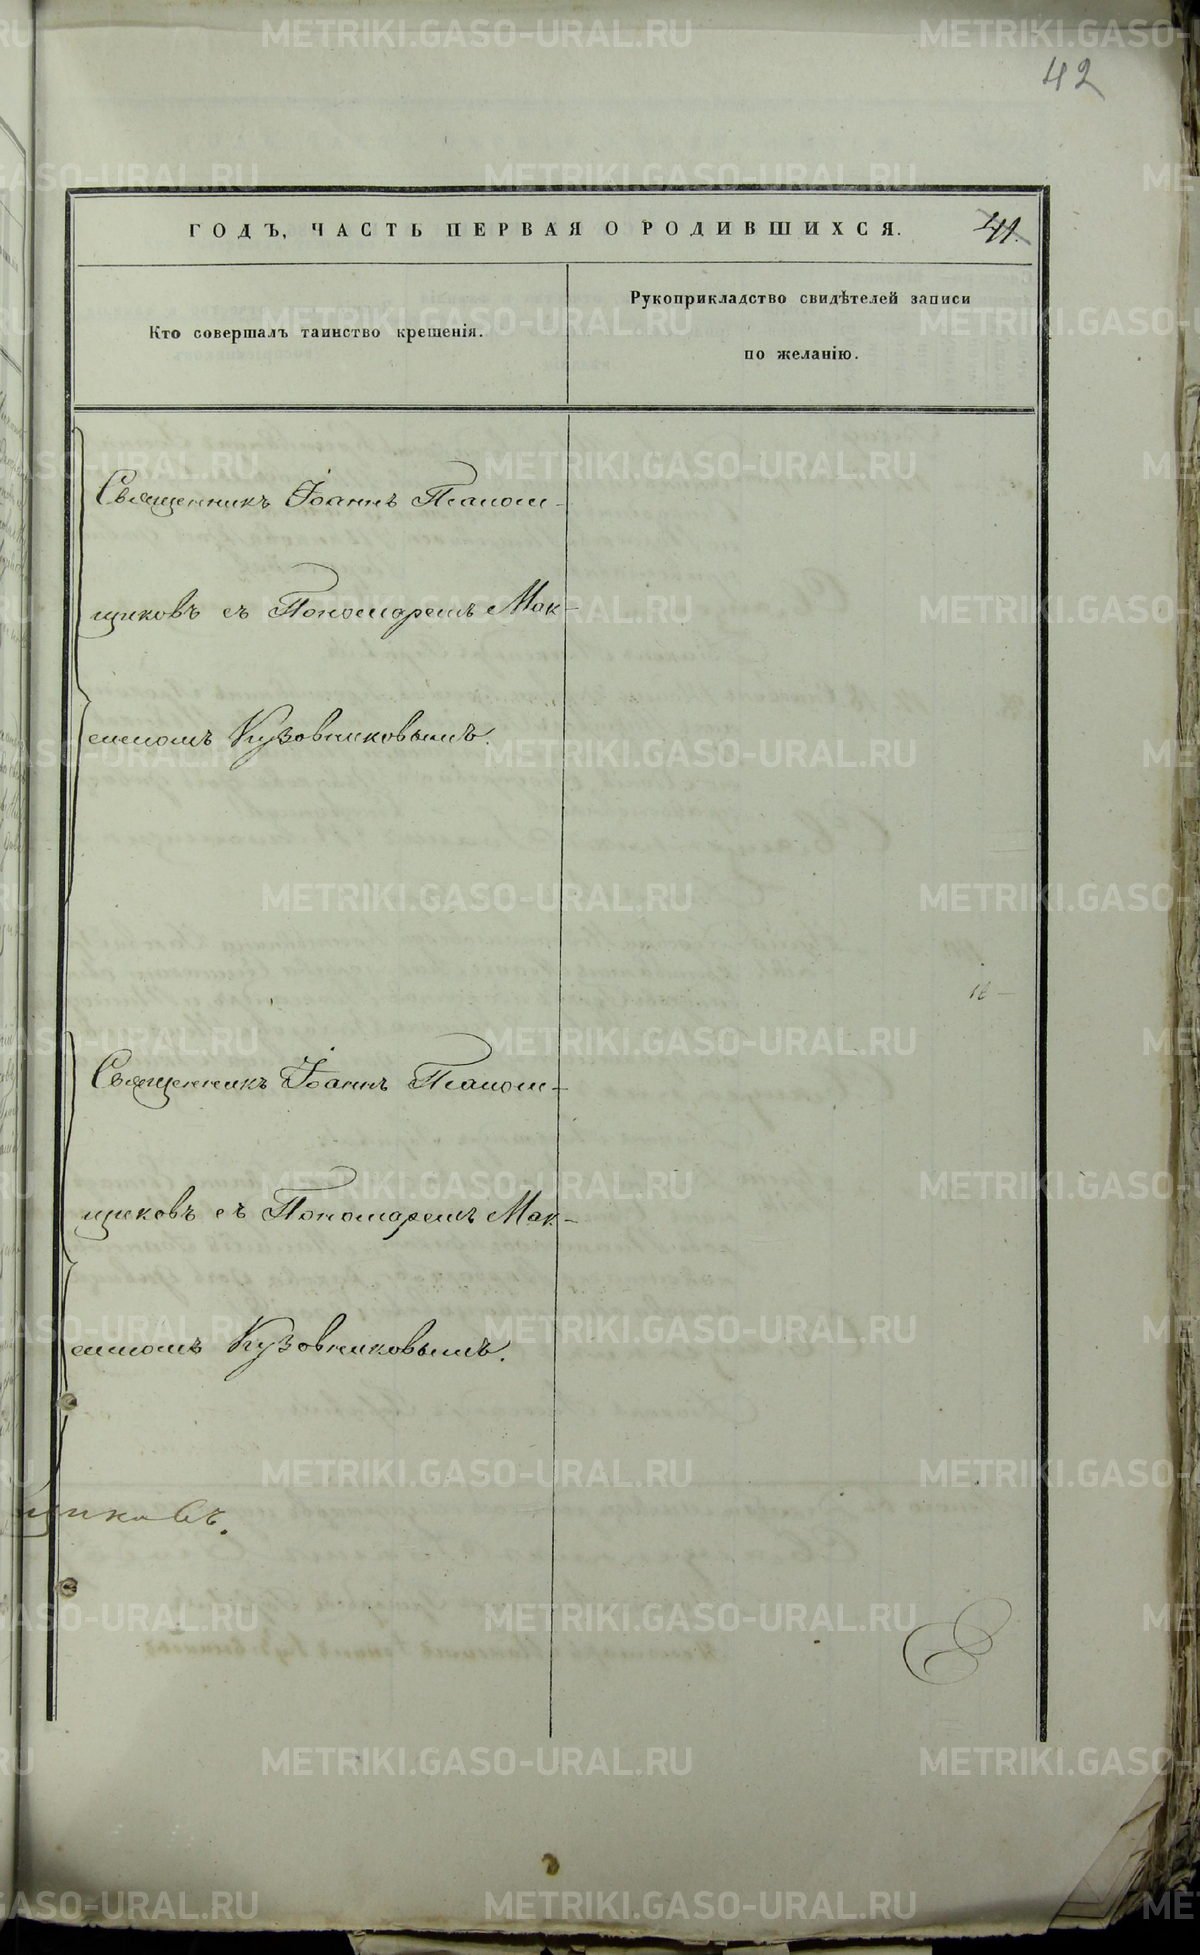 42
ГОДЪ, ЧАСТЬ ПЕРВАЯ О РОДИВШИХСЯ. 41.
Кто совершалъ таинство крещенія.
Рукоприкладство свидѣтелей записи
по желанію.
Священникъ Іоаннъ Платом-
щиковъ съ Пономаремъ Мак-
симомъ Кузовниковымъ.
Священникъ Іоаннъ Платом-
щиковъ съ Пономаремъ Мак-
симомъ Кузовниковымъ.
щиковъ.
METRIKI.GASO-URAL.RU